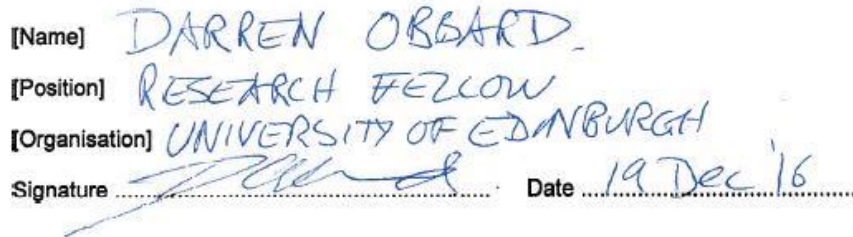 [Name] DARREN OBBARD.
[Position] RESEARCH FELLOW
[Organisation] UNIVERSITY OF EDINBURGH
Signature Date 19 Dec '16